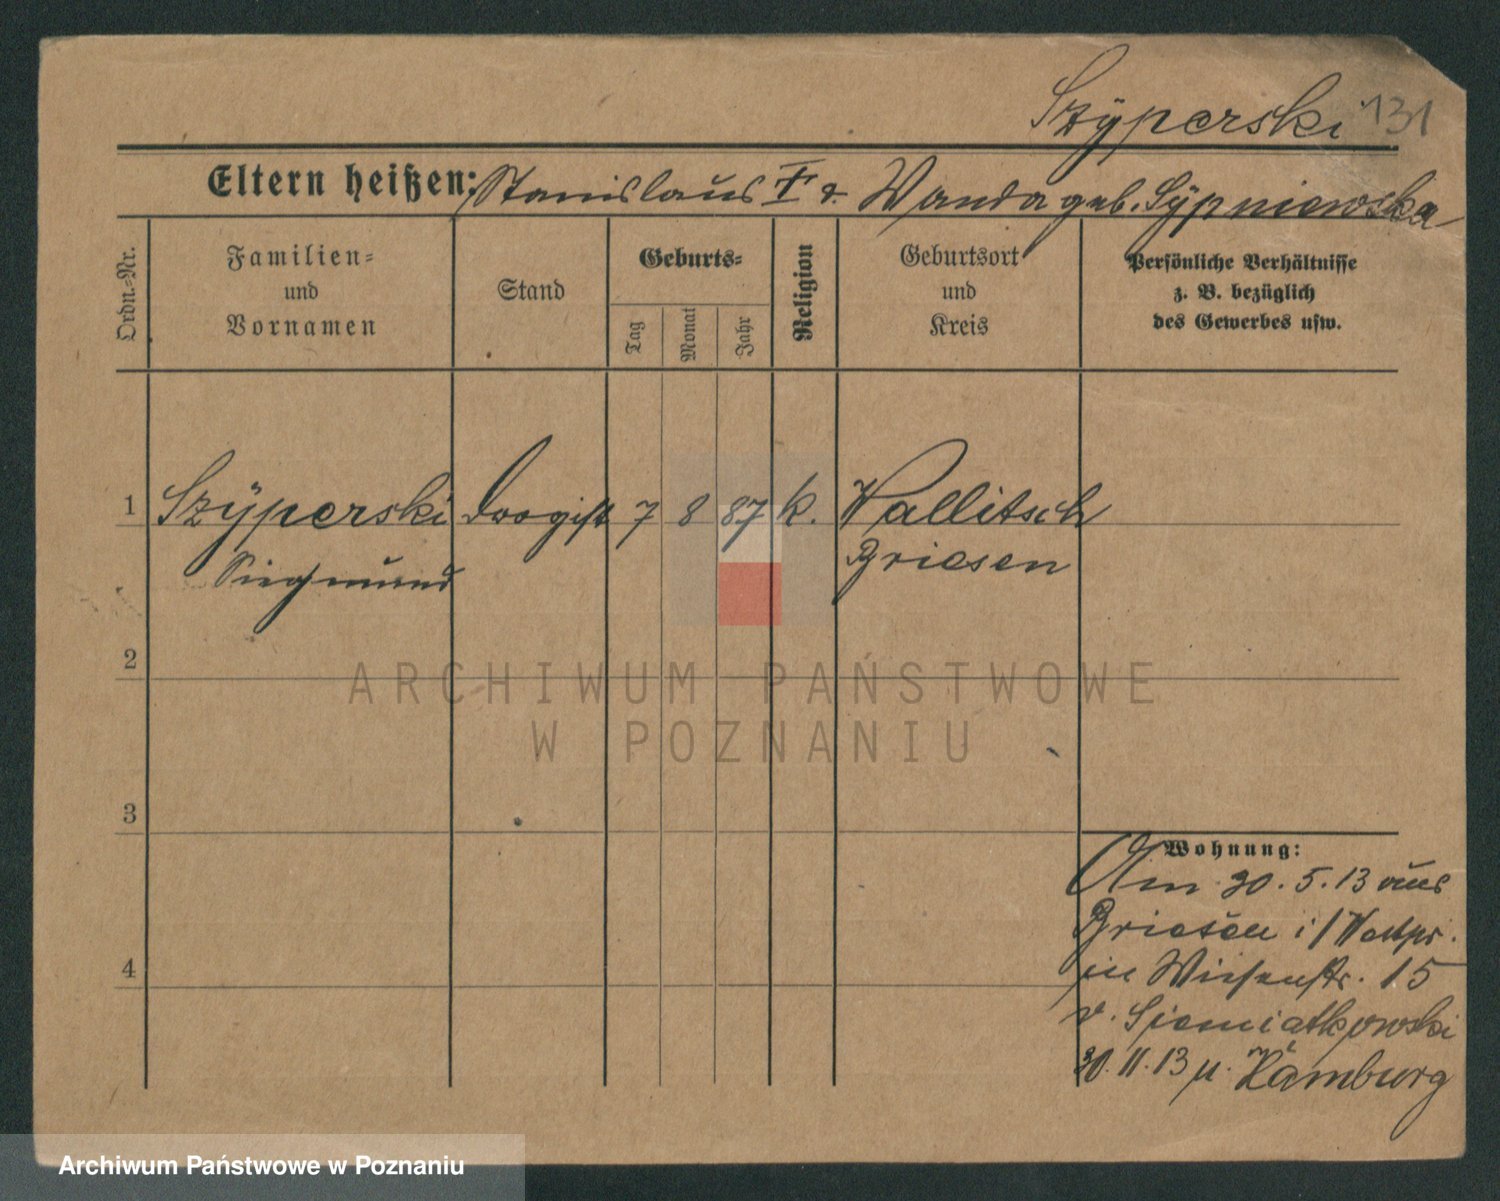 Szÿperski 131
Eltern heißen: Stanislaus u. Wanda geb. Sÿpniewska
Ordn.-Nr.
Familien-
und
Vornamen
Stand
Geburts-
Tag
Monat
Jahr
Religion
Geburtsort
und
Kreis
Persönliche Verhältnisse
z. B. bezüglich
des Gewerbes usw.
1 Szÿperski Drogist 7 8 87 k. Wallitsch
Siegmund Briesen
2
ARCHIWUM PAŃSTWOWE
W POZNANIU
3
Wohnung:
Am 30.5.13 aus
Briesen i/Westpr.
in Wiesenstr. 15
b. Siemiatkowski
30.11.13 n. Hamburg
4
Archiwum Państwowe w Poznaniu